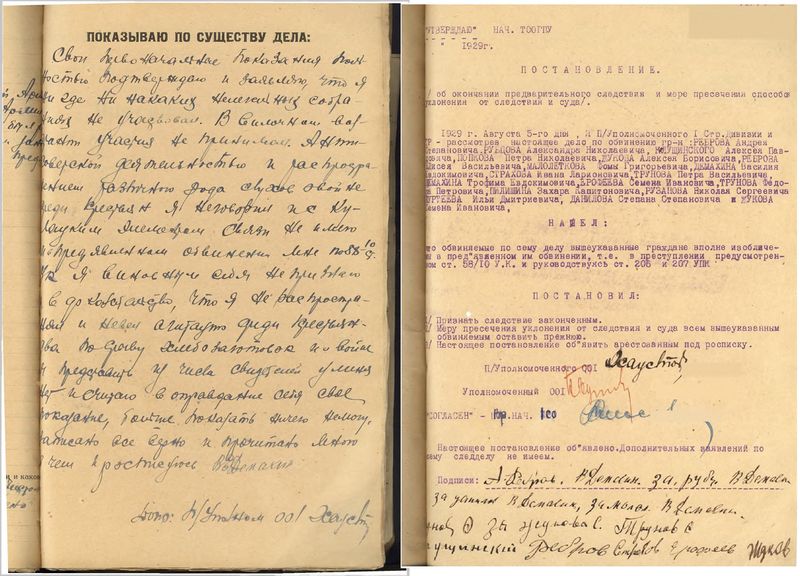 ПОКАЗЫВАЮ ПО СУЩЕСТВУ ДЕЛА:
Свои первоначальные показания пол-
ностью подтверждаю и заявляю, что я
нигде ни на каких нелегальных собра-
ниях не участвовал. В
участия не принимал. Анти-
советской деятельностью и распростра-
нением разного рода слухов о войне
среди крестьян я не говорил и с ку-
лацким элементом связи не имел
По предъявленном обвинении мне по 58/10
УК я виновным себя не признаю
в доказательство, что я не распростра-
нял и не вел агитацию среди крестьян-
ства по срыву хлебозаготовок и о войне
представить из числа свидетелей у меня
нет и считаю в оправдание себя свое
показание, больше показать ничего не могу,
записано все верно и прочитано мною
в чем и расписуюсь
Допр: П/Уполном ОО1 Хаустов
"УТВЕРЖДАЮ" НАЧ. ТООГПУ
" 1929г.
ПОСТАНОВЛЕНИЕ.
/об окончании предварительного следствия и мере пресечения способов
уклонения от следствия и суда/.
1929 г. Августа 5-го дня, и П/Уполномоченного 1 Стр.Дивизии и
- рассмотрев настоящее дело по обвинению гр-н: РЕБРОВА Андрея
Степановича, РУБЦОВА Александра Николаевича, Алексея Пав-
ловича, ПОПКОВА Петра Николаевича, ЖУКОВА Алексея Борисовича, РЕБРОВА
Василевича, МАЛОЛЕТКОВА Фомы Григорьевича, ДЕМАХИНА Василия
Евдокимовича, СТРАХОВА Ивана Ларионовича, ТРУНОВА Петра Васильевича,
ДЕМАХИНА Трофима Евдокимовича, ЕРОФЕЕВА Семена Ивановича, ТРУНОВА Федо-
Петровича, Захара Капитоновича, РУЗАНОВА Николая Сергеевича
Ильи Дмитриевича, ДАНИЛОВА Степана Степановича и ЖУКОВА
Семена Ивановича,
НАШЕЛ:
что обвиняемые по сему делу вышеуказанные граждане вполне изобличе-
ны в пред"явленном им обвинении, т.е. в преступлении предусмотрен-
ном ст. 58/10 У.К. и руководствуясь ст. 206 и 207 УПК
ПОСТАНОВИЛ:
/ Признать следствие законченным.
/ Меру пресечения уклонения от следствия и суда всем вышеуказанным
обвиняемым оставить прежнюю.
/ Настоящее постановление об"явить арестованным под росписку.
П/Уполномоченный ОО1 Хаустов
Уполномоченный ОО1
"СОГЛАСЕН" - НАЧ.
Настоящее постановление об"явлено. Дополнительных заявлений по
сему следделу не имеем.
Подписи: А Ребров. В Демахин. за, рубц. В Демахин
за В Демахин, за малол. В Демахин.
за Жукова С. Трунов С
Ребров Страхов Ерофеев Жуков